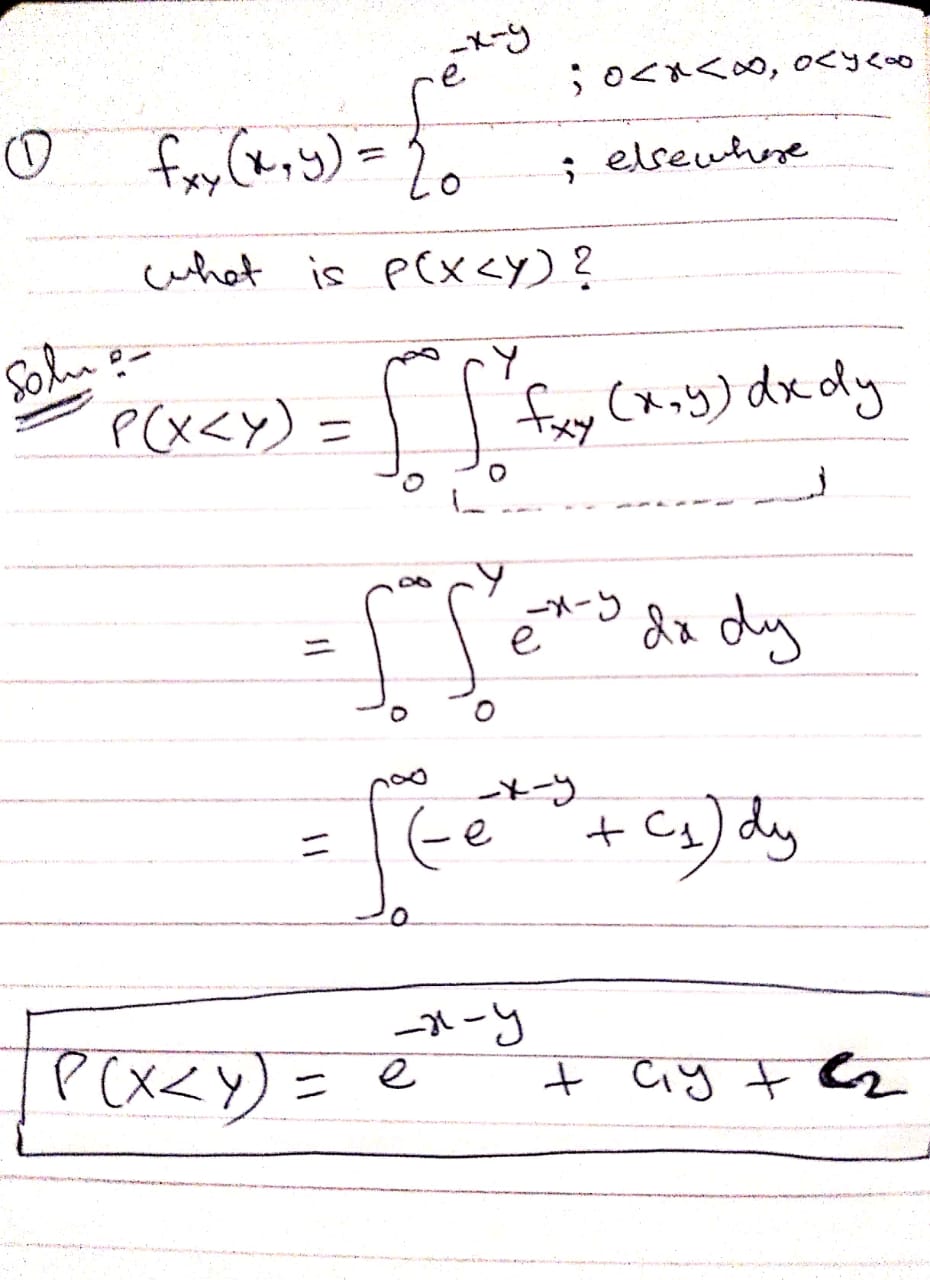 ① f_xy(x,y) = { e^{-x-y} ; 0<x<∞, 0<y<∞
0 ; elsewhere
what is P(X<Y)?
Soln:-
P(X<Y) = ∫_0^∞ ∫_0^Y f_xy(x,y) dx dy
= ∫_0^∞ ∫_0^Y e^{-x-y} dx dy
= ∫_0^∞ (-e^{-x-y} + C_1) dy
P(X<Y) = e^{-x-y} + C_1y + C_2